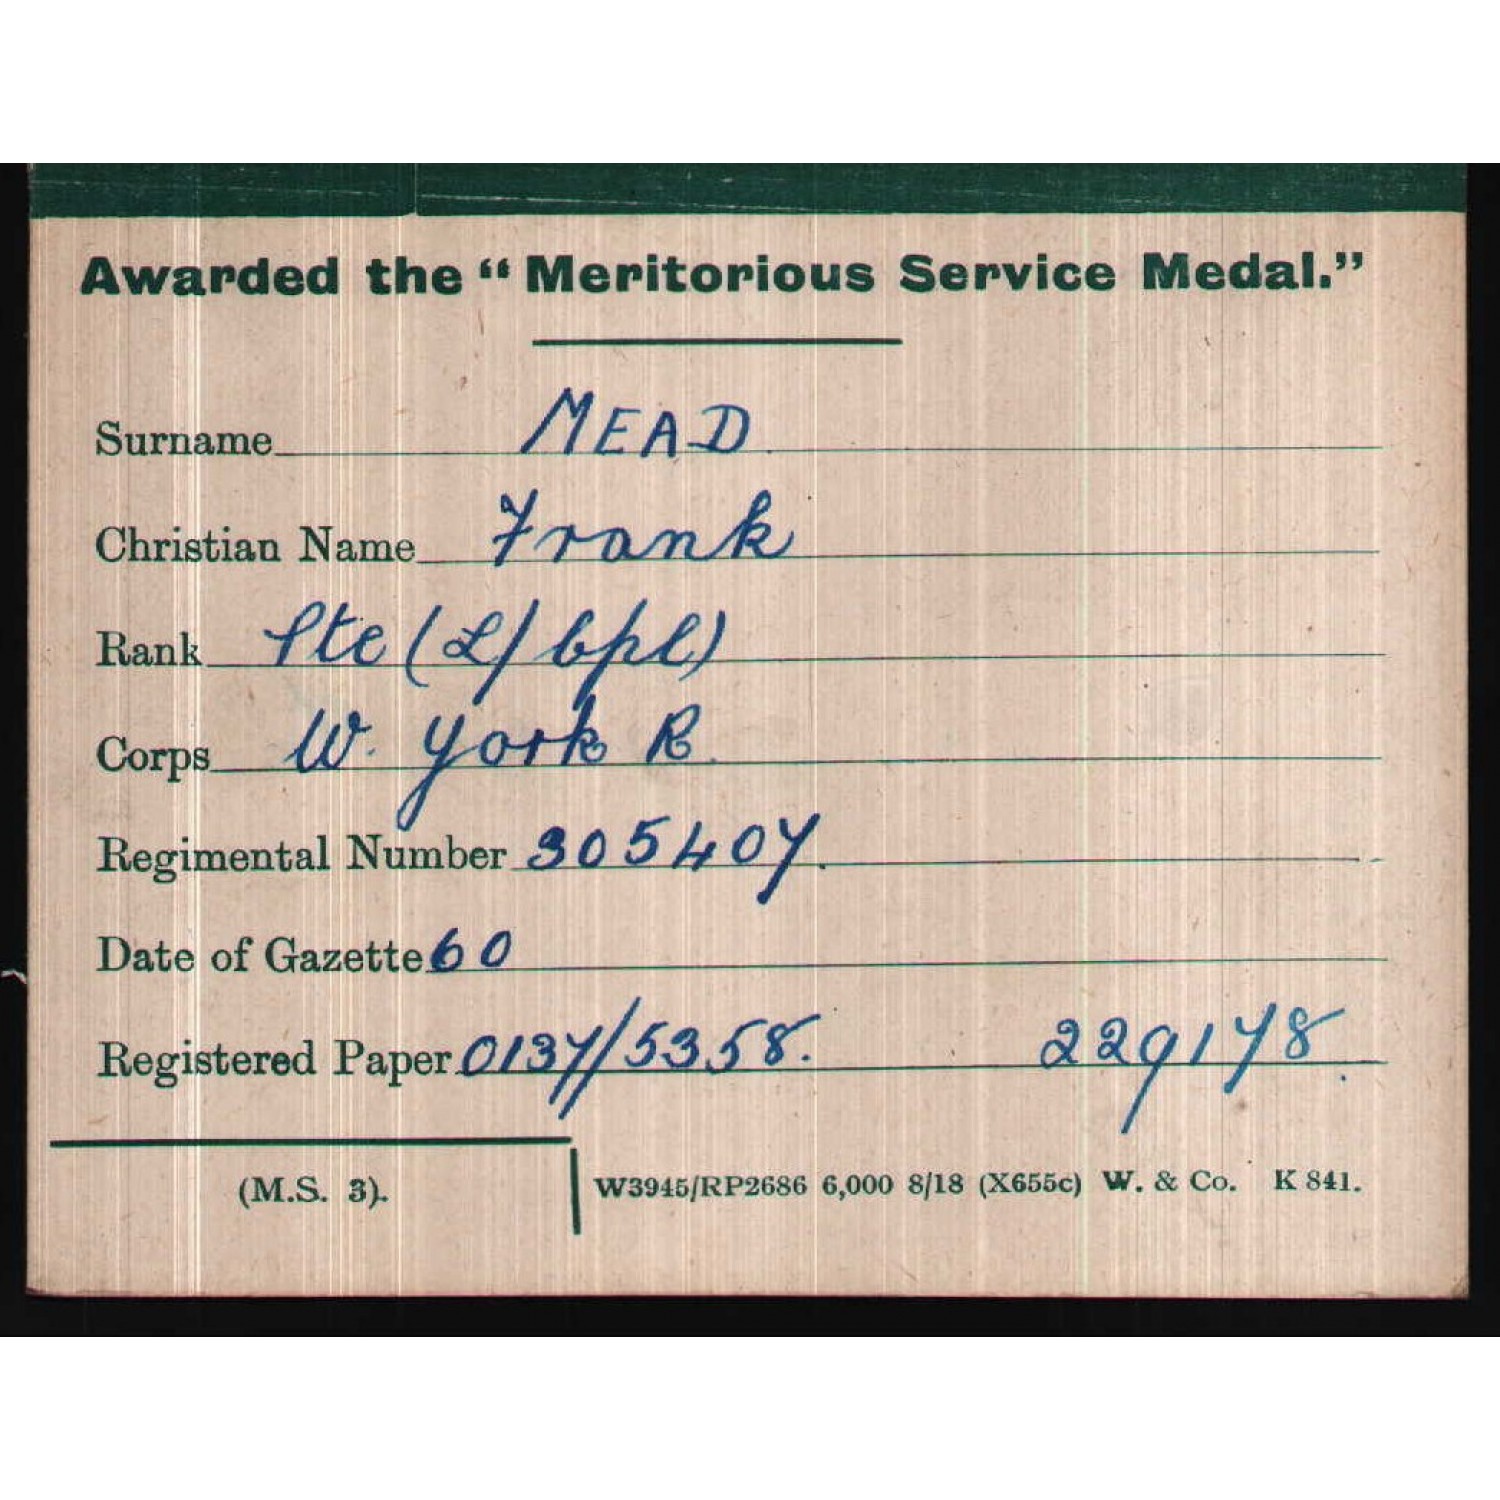 Awarded the “Meritorious Service Medal.”
Surname MEAD.
Christian Name Frank
Rank Pte (L/Cpl)
Corps W. York R.
Regimental Number 305407.
Date of Gazette 60
Registered Paper 0137/5358. 229178.
(M.S. 3). W3945/RP2686 6,000 8/18 (X655c) W. & Co. K 841.